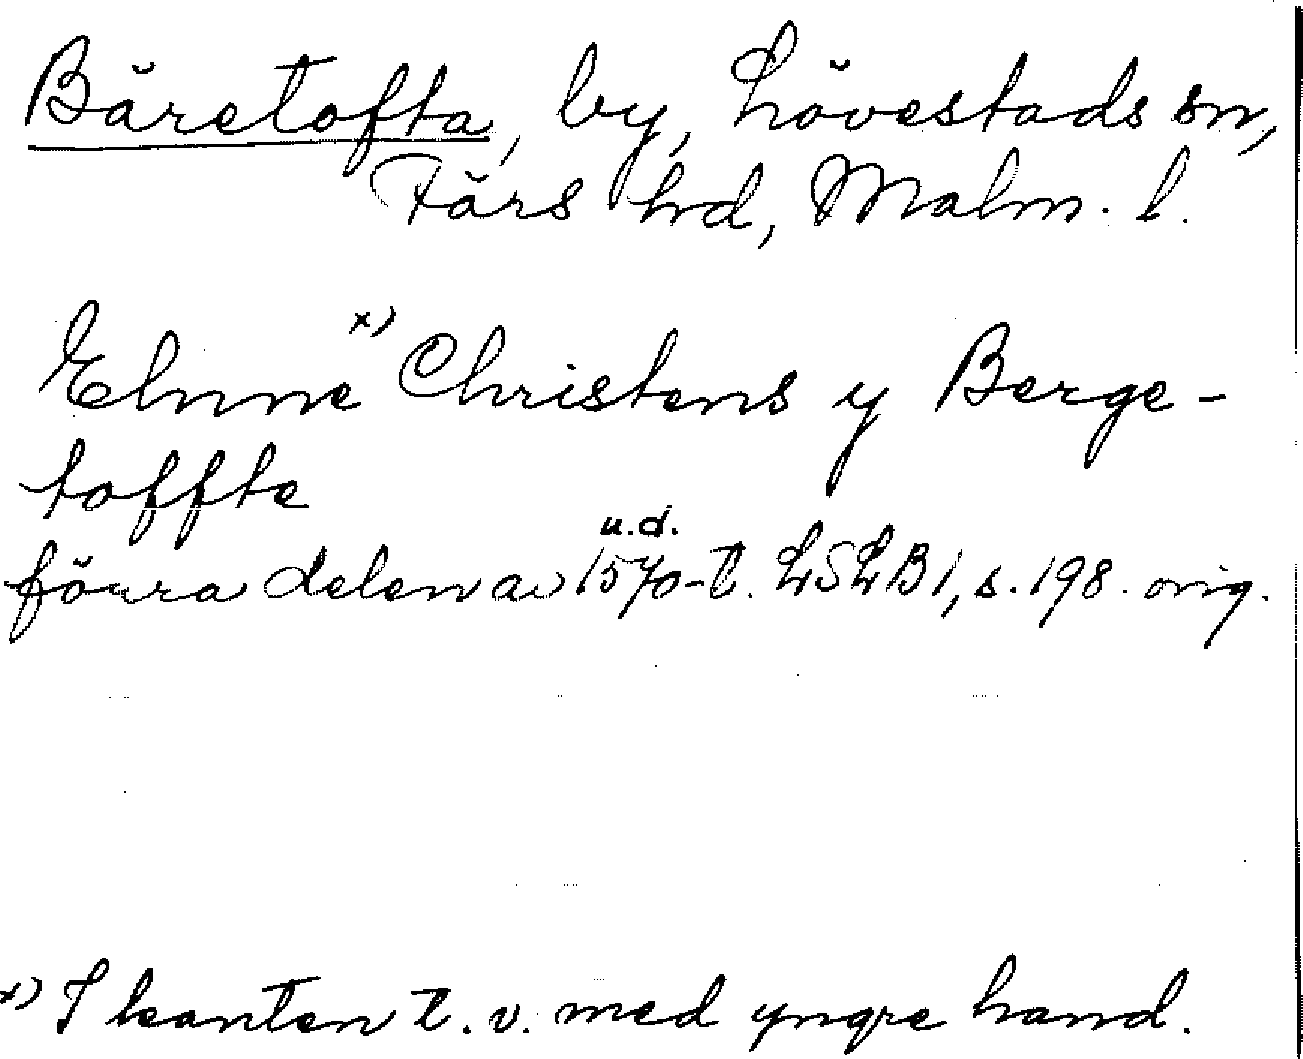 Bäretofta, by, Lövestads sn,
Färs hd, Malm. l.
Elnne x) Christens y Berge-
toffte
u.d.
förra delen av 1570-t. LSLB 1, s. 198. orig.
x) I kanten t.v. med yngre hand.